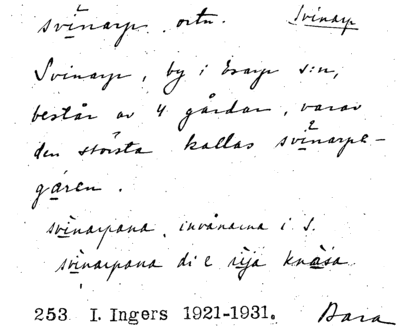 svinarp. ortn. Svinarp
Svinarp, by i Esarp s:n,
består av 4 gårdar, varav
den största kallas svinarpa-
gåren.
svinarpana, invånarna i S.
svinarpana di e rija knåsa
253 I. Ingers 1921-1931. Bara